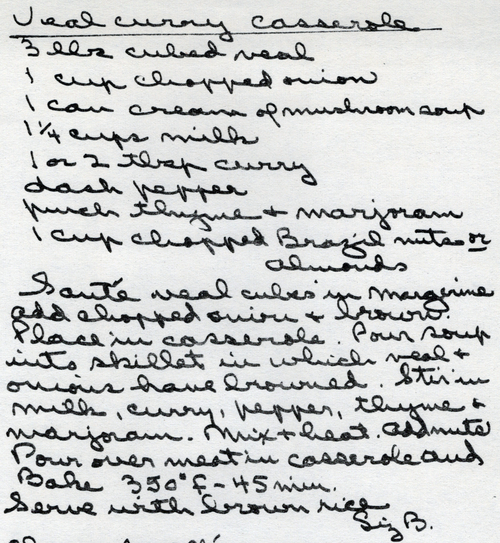 Veal curry casserole
3 lbs cubed veal
1 cup chopped onion
1 can cream of mushroom soup
1 1/4 cups milk
1 or 2 tbsp curry
dash pepper
pinch thyme + marjoram
1 cup chopped Brazil nuts or
almonds
Sauté veal cubes in margerine
add chopped onion + brown.
Place in casserole. Pour soup
into skillet in which veal +
onions have browned. Stir in
milk, curry, pepper, thyme +
marjoram. Mix + heat. add nuts
Pour over meat in casserole and
Bake 350° F - 45 min.
Serve with brown rice
Liz B.